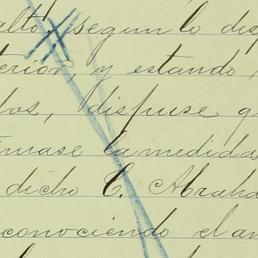 alto, segun lo disp
terior, y estando
dos, dispuse q
tuase la medida
dicho C. Abraha
conociendo el an